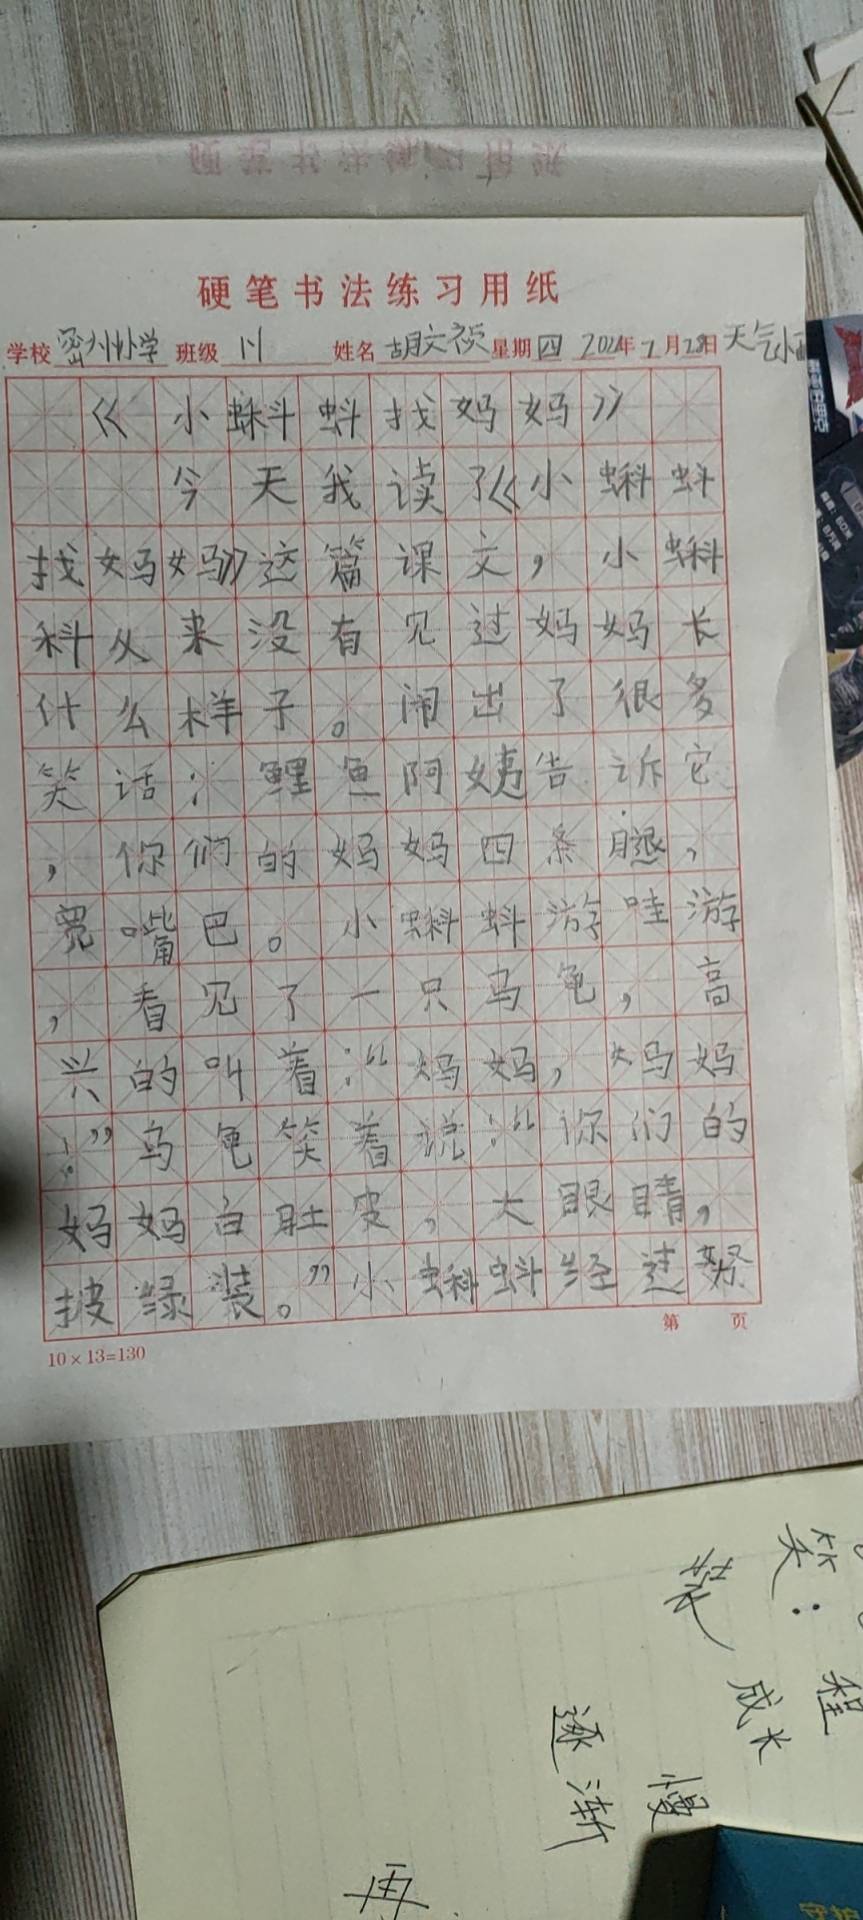 硬笔书法练习用纸
学校 密州小学 班级 姓名 胡文 星期 四 年 月 28 日 天气
《小蝌蚪找妈妈》
今天我读了《小蝌蚪
找妈妈》这篇课文，小蝌
科从来没有见过妈妈长
什么样子。闹出了很多
笑话：鲤鱼阿姨告诉它
，你们的妈妈四条腿，
宽嘴巴。小蝌蚪游哇游
，看见了一只乌龟，高
兴的叫着：“妈妈，妈妈
！”乌龟笑着说：“你们的
妈妈白肚皮，大眼睛，
披绿装。”小蝌蚪经过努
第 页
10×13=130
笑：
装
程
成长
逐渐
慢
再